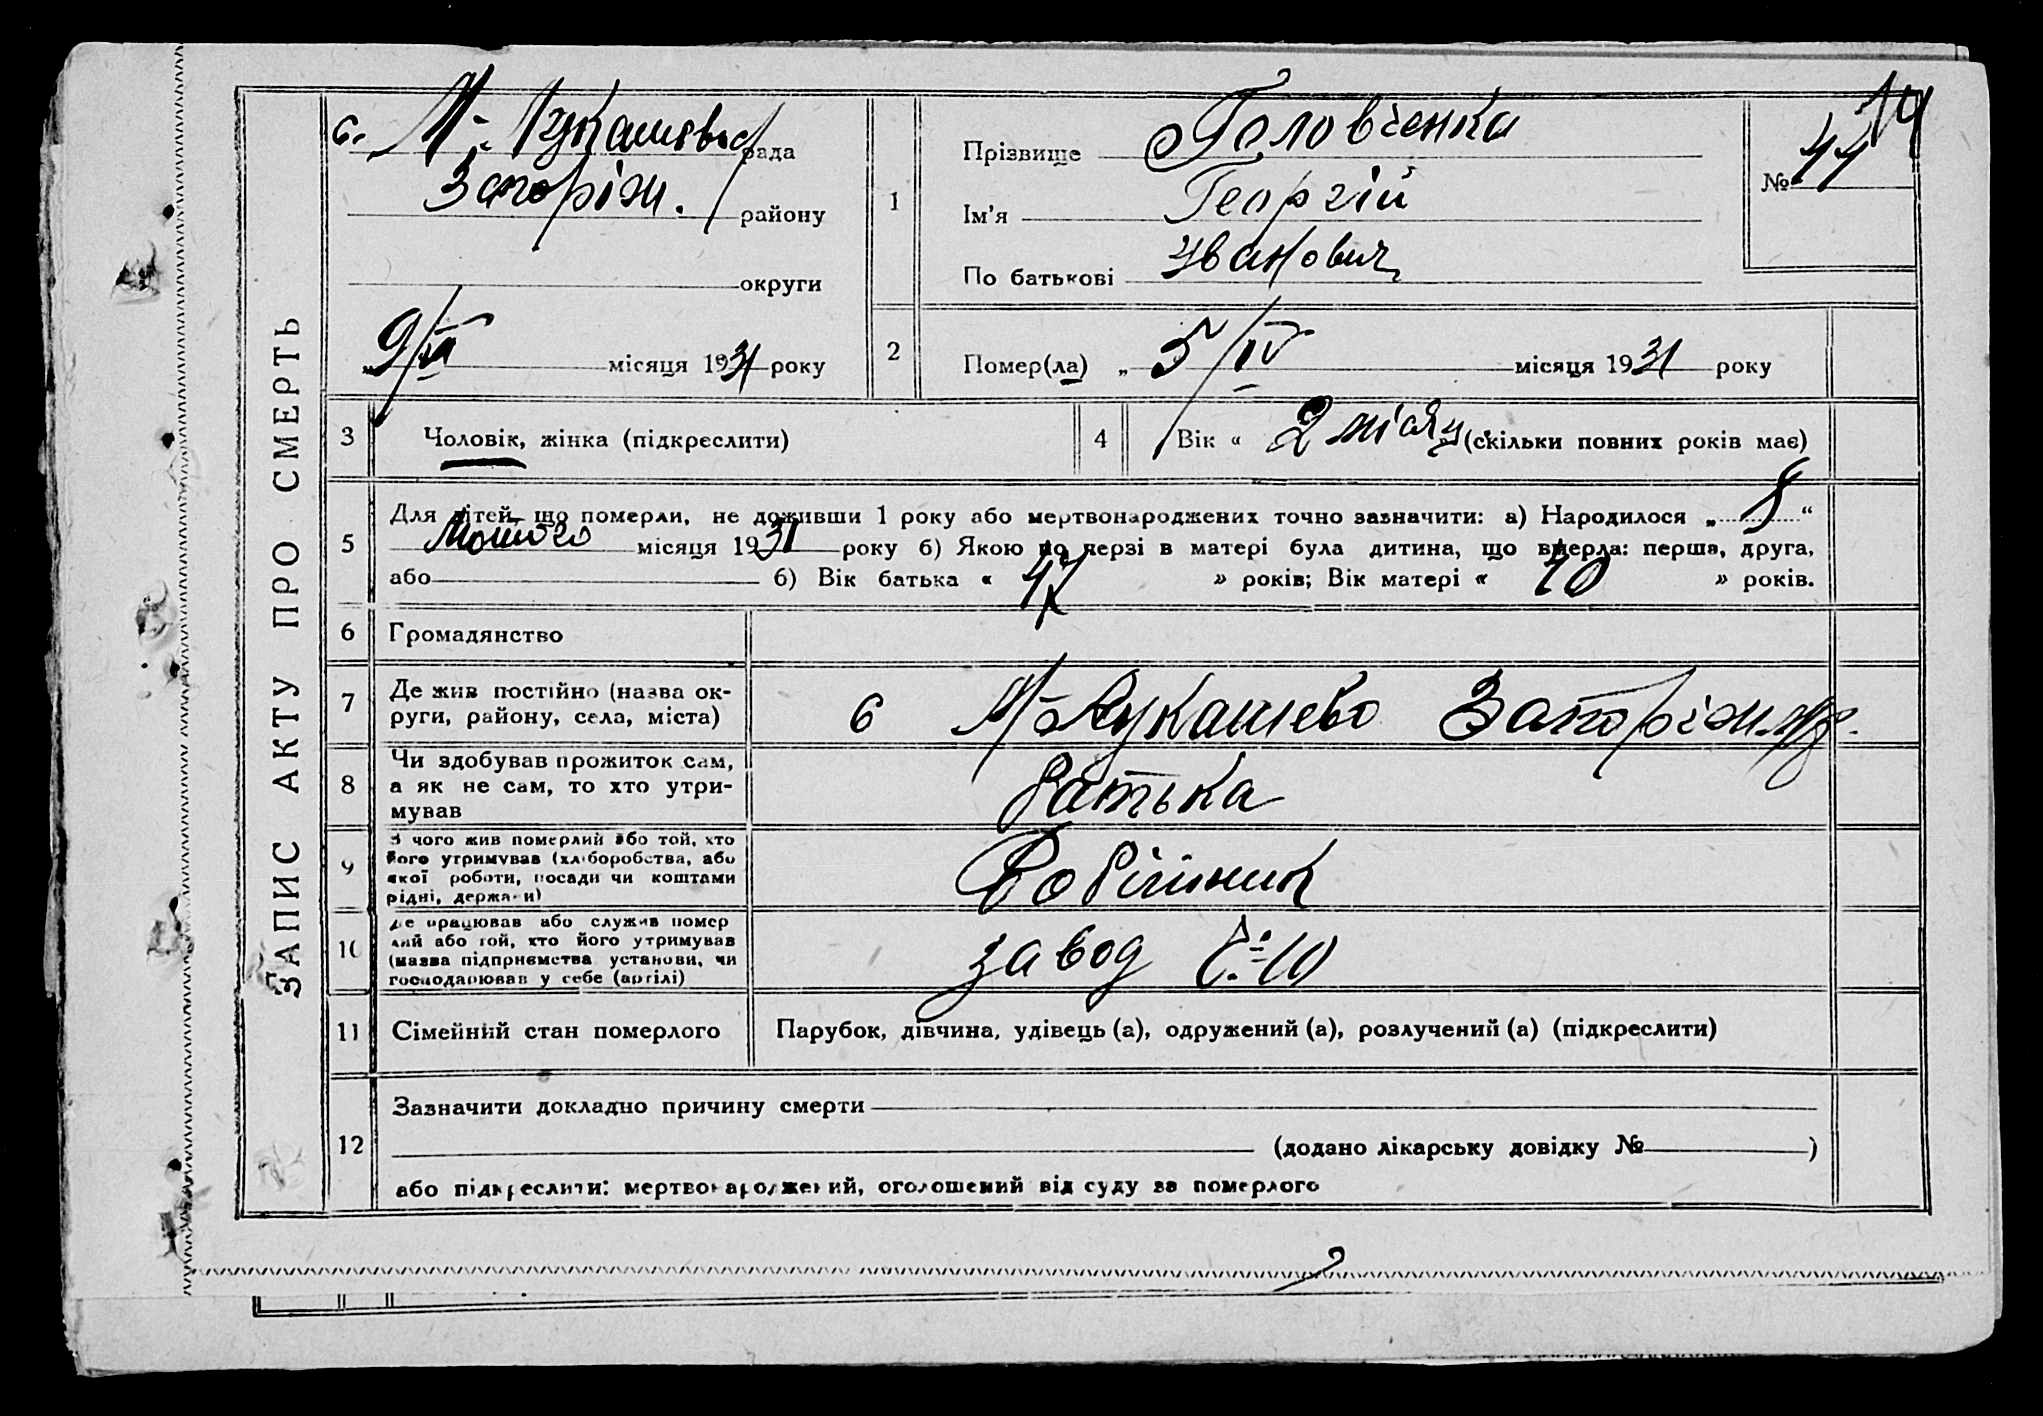 ЗАПИС АКТУ ПРО СМЕРТЬ
с. М-Лукашевс рада
Запоріж. району
округи
„9/IV місяця 1931 року
1
Прізвище Головченка
Ім'я Георгій
По батькові Іванович
№ 44
14
2
Помер(ла) „ 5/IV місяця 1931 року
3 Чоловік, жінка (підкреслити)
4 Вік « 2 місяц. » (скільки повних років має)
5 Для дітей, що померли, не доживши 1 року або мертвонароджених точно зазначити: а) Народилося „ 8 “
Лютого місяця 1931 року б) Якою по черзі в матері була дитина, що вмерла: перша, друга,
або б) Вік батька « 47 » років; Вік матері « 40 » років.
6 Громадянство
7 Де жив постійно (назва округи, району, села, міста) с М-Лукашево Запоріж.
8 Чи здобував прожиток сам, а як не сам, то хто утримував батька
9 З чого жив померлий або той, хто його утримував (хліборобства, або якої роботи, посади чи коштами рідні, держави) Робітник
10 Де працював або служив померлий або той, хто його утримував (назва підприємства установи, чи господарював у себе (артілі) завод 10
11 Сімейний стан померлого Парубок, дівчина, удівець (а), одружений (а), розлучений (а) (підкреслити)
12 Зазначити докладно причину смерти
(додано лікарську довідку № )
або підкреслити: мертвонароджений, оголошений від суду за померлого